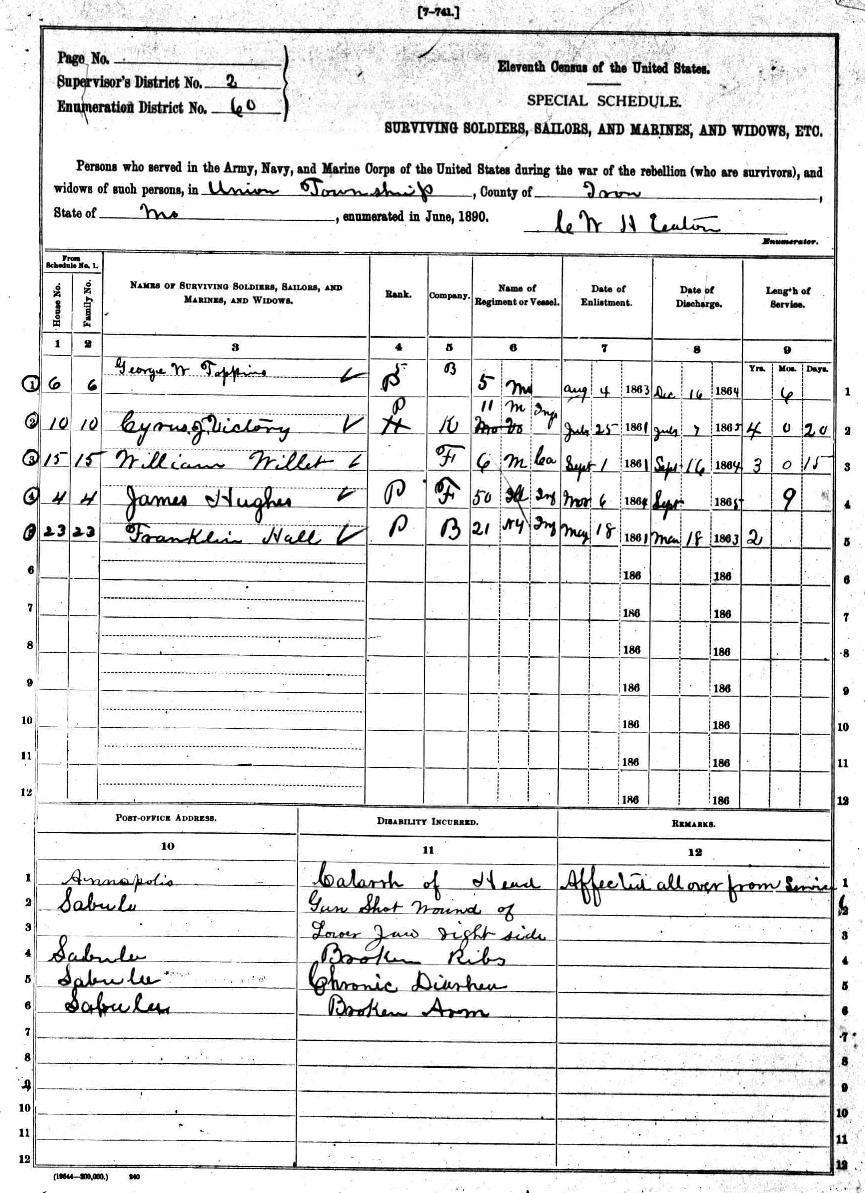 [7-741.]
Page No.
Supervisor's District No. 2
Enumeration District No. 60
Eleventh Census of the United States.
SPECIAL SCHEDULE.
SURVIVING SOLDIERS, SAILORS, AND MARINES, AND WIDOWS, ETC.
Persons who served in the Army, Navy, and Marine Corps of the United States during the war of the rebellion (who are survivors), and
widows of such persons, in Union Township, County of Iron,
State of Mo, enumerated in June, 1890.
W H Eeaton
Enumerator.
From Schedule No. 1.
House No. Family No. NAMES OF SURVIVING SOLDIERS, SAILORS, AND MARINES, AND WIDOWS. Rank. Company. Name of Regiment or Vessel. Date of Enlistment. Date of Discharge. Length of Service.
1 2 3 4 5 6 7 8 9
Yrs. Mos. Days.
1 6 6 George W Toppins B 5 Mo Aug 4 1863 Dec 16 1864 6 1
P 11 M Inf
2 10 10 Cyrus J. Victory K July 25 1861 July 7 1865 4 0 20 2
3 15 15 William Willet F 6 M Ca Sept 1 1861 Sept 16 1864 3 0 15 3
4 4 4 James Hughes P F 50 Ill Inf 6 1864 Sept 1865 9 4
5 23 23 Franklin Hall P B 21 NY Inf May 18 1861 May 18 1863 2 5
6 186 186 6
7 186 186 7
8 186 186 8
9 186 186 9
10 186 186 10
11 186 186 11
12 186 186 12
POST-OFFICE ADDRESS. DISABILITY INCURRED. REMARKS.
10 11 12
1 Annapolis Catarrh of Head Affected all over from Service 1
2 Sabula Gun Shot Wound of 2
3 Lower Jaw right side 3
4 Sabula Broken Ribs 4
5 Sabula Chronic Diarhea 5
6 Sabula Broken Arm 6
7 7
8 8
9 9
10 10
11 11
12 12
(19644—300,000.) 240